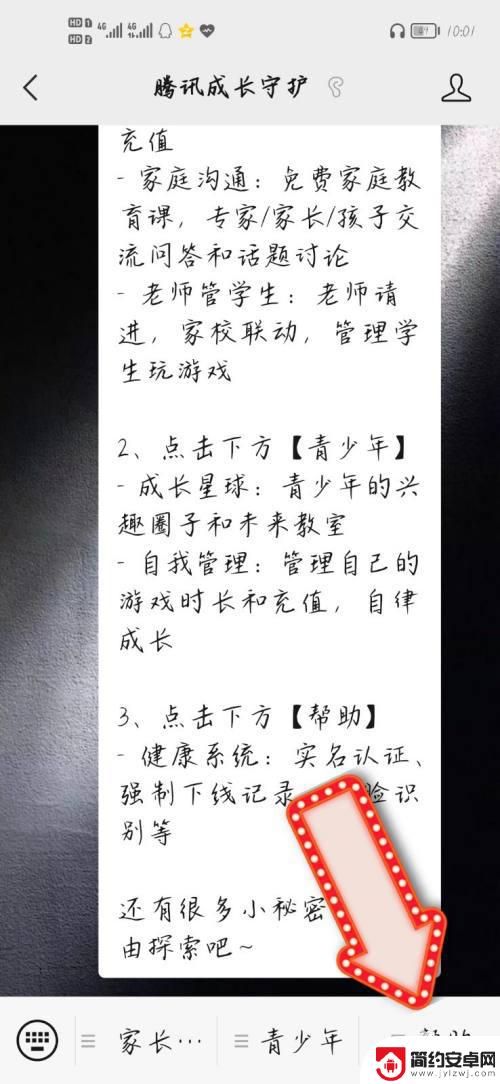 HD 1 4G 4G 10:01
HD 2
腾讯成长守护
充值
- 家庭沟通：免费家庭教
育课，专家/家长/孩子交
流问答和话题讨论
- 老师管学生：老师请
进，家校联动，管理学
生玩游戏
2、点击下方【青少年】
- 成长星球：青少年的兴
趣圈子和未来教室
- 自我管理：管理自己的
游戏时长和充值，自律
成长
3、点击下方【帮助】
- 健康系统：实名认证、
强制下线记录 脸识
别等
还有很多小秘密
由探索吧~
家长…
青少年
简约安卓网
www.jylzwj.com